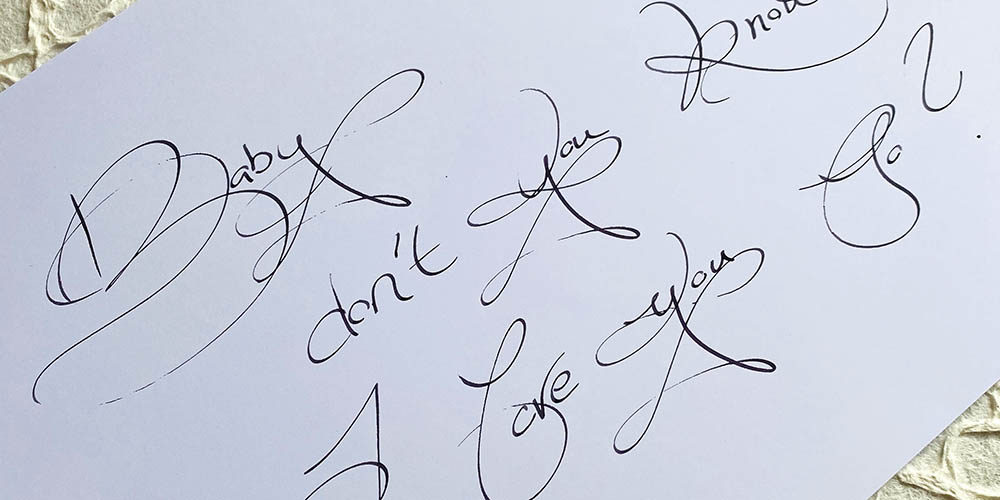 Baby don't You Know
I Love You So ?